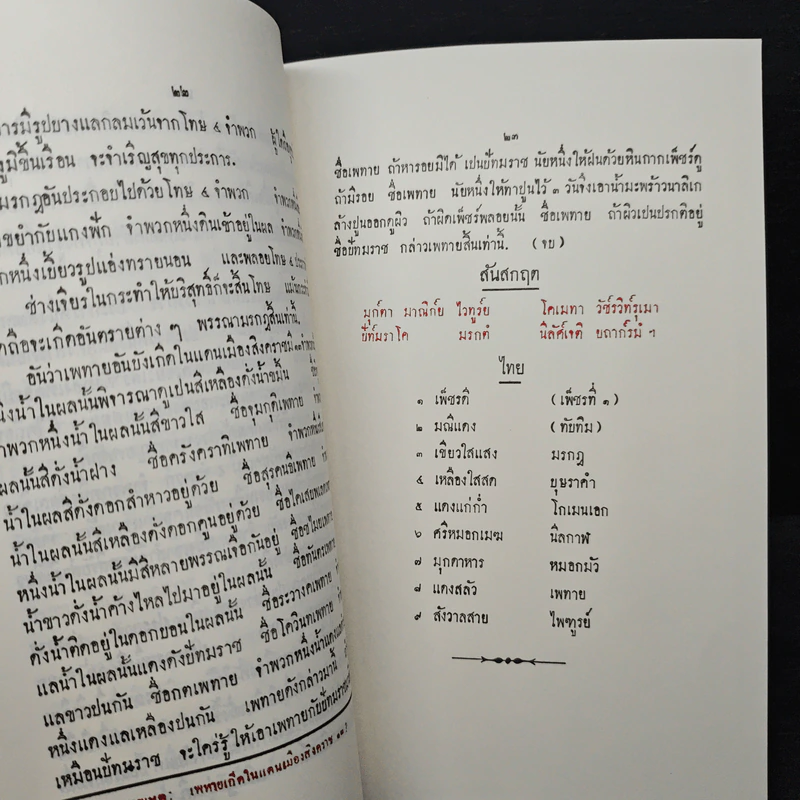 ๒๒
ารมีรูปยางแลกลมเว้นจากโทษ ๔ จำพวก ผู้ใด
ภูมิชื่นเรือน จะจำเริญสุขทุกประการ.
มรกฎอันประกอบไปด้วยโทษ ๔ จำพวก
ขยำกับแกงฟัก จำพวกหนึ่งดินเข้าอยู่ในผล จำพวก
กหนึ่งเยี่ยวรูปแอ่งทรายนอน และพลอยโทษ ๔
ช่างเจียรในกระทำให้บริสุทธิ์ก็จะสิ้นโทษ
ดถือจะเกิดอันตรายต่าง ๆ พรรณามรกฎสิ้นเท่านี้.
อันว่าเพทายอันบังเกิดในแดนเมืองสิงคราชมี
นึ่งน้ำในผลนั้นพิจารณาดูเปนสีเหลืองดั่งน้ำขมิ้น ชื่อ
ำพวกหนึ่งน้ำในผลนั้นสีขาวใส ชื่อจุมกุติเพทาย
ผลนั้นสีดั่งน้ำฝาง ชื่อครังคราทิเพทาย จำพวกหนึ่ง
น้ำในผลสีดั่งดอกสำหาวอยู่ด้วย ชื่อสุรคนธิเพทาย
น้ำในผลนั้นสีเหลืองดั่งดอกคูนอยู่ด้วย
หนึ่งน้ำในผลนั้นมีสีหลายพรรณเจือกันอยู่
น้ำขาวดั่งน้ำค้างไหลไปมาอยู่ในผลนั้น
ดั่งน้ำติดอยู่ในดอกยอนในผลนั้น ชื่อระวางคเพทาย
แลน้ำในผลนั้นแดงดังปัทมราช ชื่อโควินทเพทาย
แลขาวปนกัน ชื่อกตเพทาย จำพวกหนึ่งน้ำแดงแล
หนึ่งแดงแลเหลืองปนกัน เพทายดังกล่าวมานี้
เหมือนปัทมราช จะใคร่รู้ให้เอาเพทายกับปัทมราช
เพทายเกิดในแดนเมืองสิงคราช
๒๓
ชื่อเพทาย ถ้าหารอยมิได้ เปนปัทมราช นัยหนึ่งให้ฝนด้วยหินกากเพ็ชร์ดู
ถ้ามีรอย ชื่อเพทาย นัยหนึ่งให้ทาปูนไว้ ๓ วันจึงเอาน้ำมะพร้าวนาลิเก
ล้างปูนออกดูผิว ถ้าผิดเพ็ชร์พลอยนั้น ชื่อเพทาย ถ้าผิวเปนปรกติอยู่
ชื่อปัทมราช กล่าวเพทายสิ้นเท่านี้. (จบ)
สันสกฤต
มุก์ดา มาณิก์ย ไวฑูร์ย โคเมทา วัช์รวิท์รุเมา
ปัท์มราโค มรกตํ นิลัศ์เจติ ยถาก์รมํ ฯ
ไทย
๑ เพ็ชรดี (เพ็ชรที่ ๑)
๒ มณีแดง (ทับทิม)
๓ เขียวใสแสง มรกฎ
๔ เหลืองใสสด บุษราคำ
๕ แดงแก่ก่ำ โกเมนเอก
๖ ศรีหมอกเมฆ นิลกาฬ
๗ มุกดาหาร หมอกมัว
๘ แดงสลัว เพทาย
๙ สังวาลสาย ไพฑูรย์